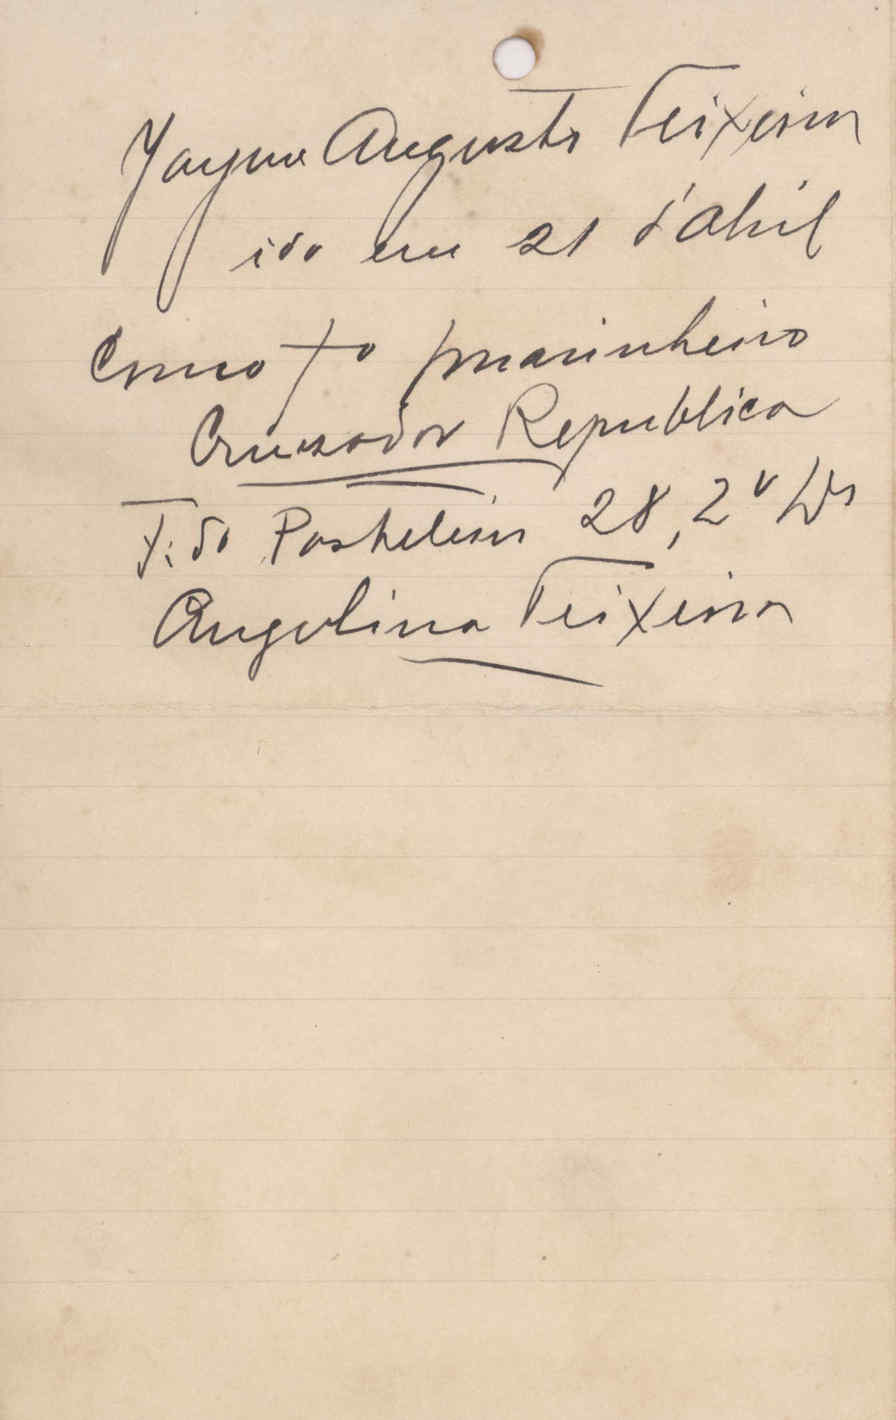 Jayme Augusto Teixeira
ido em 21 d'Abril
Como 1o marinheiro
Cruzador Republica
T. do Pasteleiro 28, 2o
Angelina Teixeira